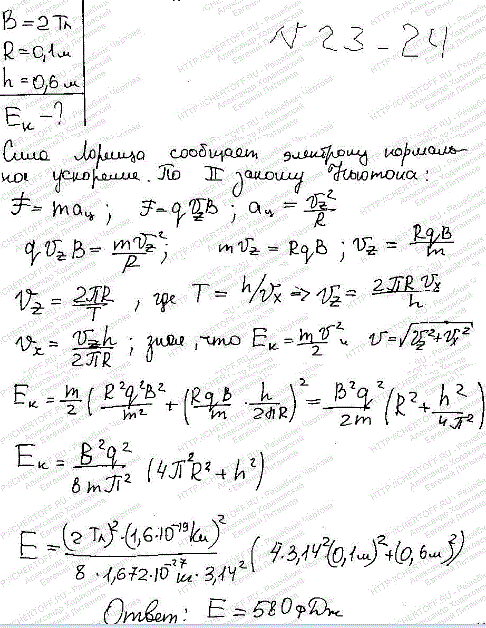 B = 2 Тл
R = 0,1 м
h = 0,6 м
Eк - ?
N 23 - 24
Сила Лоренца сообщает электрону нормаль-
ное ускорение. По II закону Ньютона:
F = maц ; F = q Vz B ; aц = Vz²/R
q Vz B = mVz²/R ; mVz = RqB ; Vz = RqB/m
Vz = 2πR/T , где T = h/Vx => Vz = 2πRVx/h
Vx = Vzh/2πR ; зная, что Eк = mv²/2 и v = √(Vz²+Vx²)
Eк = m/2 (R²q²B²/m² + (RqB/m · h/2πR)²) = B²q²/2m (R² + h²/4π²)
Eк = B²q²/8mπ² (4π²R² + h²)
E = (2 Тл)²·(1,6·10⁻¹⁹ Кл)²/8·1,672·10⁻²⁷ кг·3,14² (4·3,14²(0,1м)² + (0,6м)²)
Ответ: E = 580 фДж